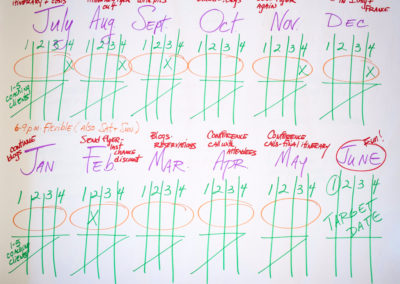 ITINERARY + COSTS
OUT
AGAIN
FRANCE
July Aug Sept Oct Nov Dec
1 2 3 4 1 2 3 4 1 2 3 4 1 2 3 4 1 2 3 4 1 2 3 4
X X X X X
1-5 COACHING CLIENTS
6-9 pm FLEXIBLE (ALSO SAT + SUN)
CONTINUE BLOGS
SEND FLYER - LAST CHANCE DISCOUNT
BLOGS - RESERVATIONS
CONFERENCE CALL WITH ATTENDEES
CONFERENCE CALL - FINAL ITINERARY
JAN Feb MAR APR MAY JUNE
1 2 3 4 1 2 3 4 1 2 3 4 1 2 3 4 1 2 3 4 1 2 3 4
X
1-5 COACHING CLIENTS
TARGET DATE